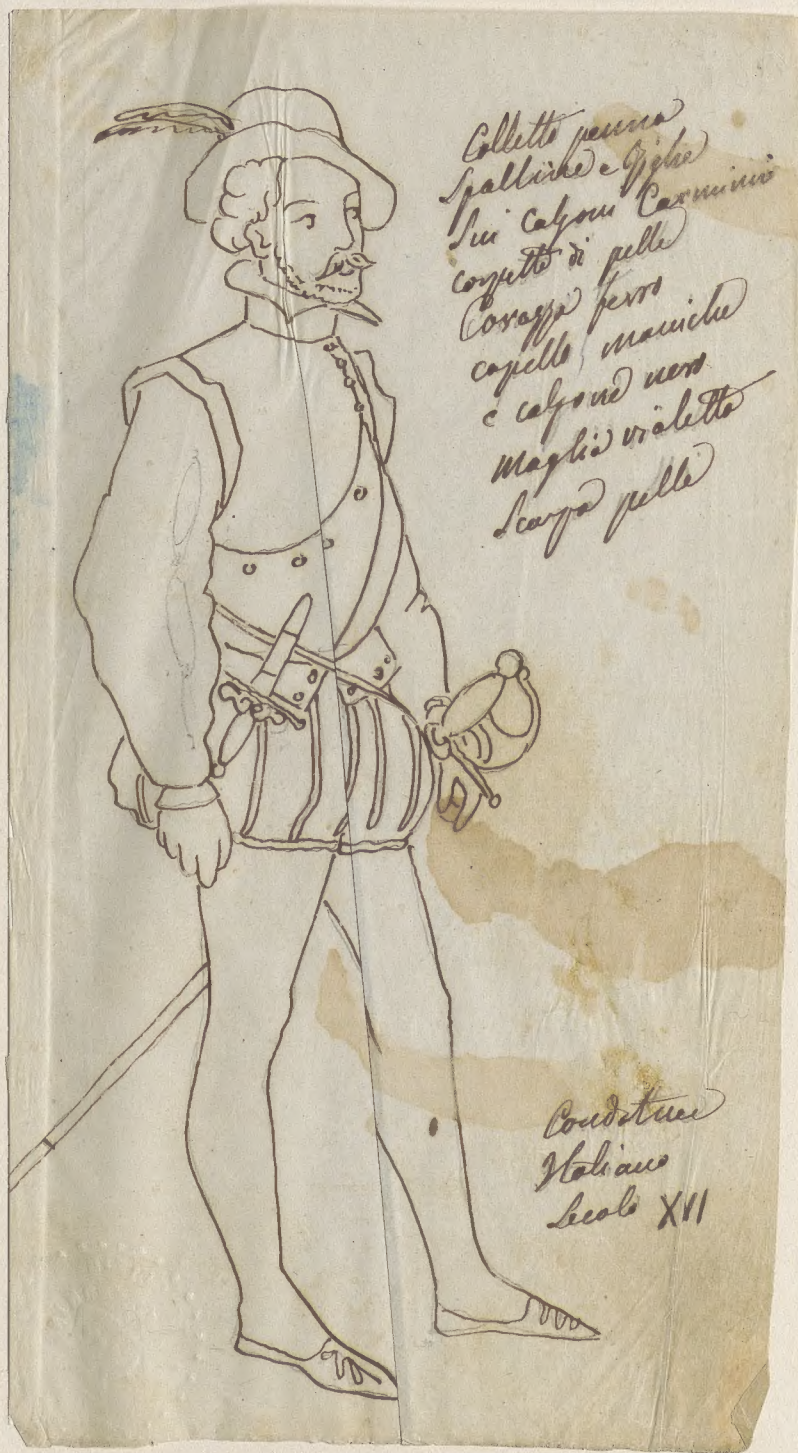 Colletto penna
Spalline e Righe
Sui calzoni Carminio
corpetto di pelle
Corazza ferro
capello, maniche
e calzone nero
Maglia violetta
Scarpa pelle
Italiano
Secolo XVI